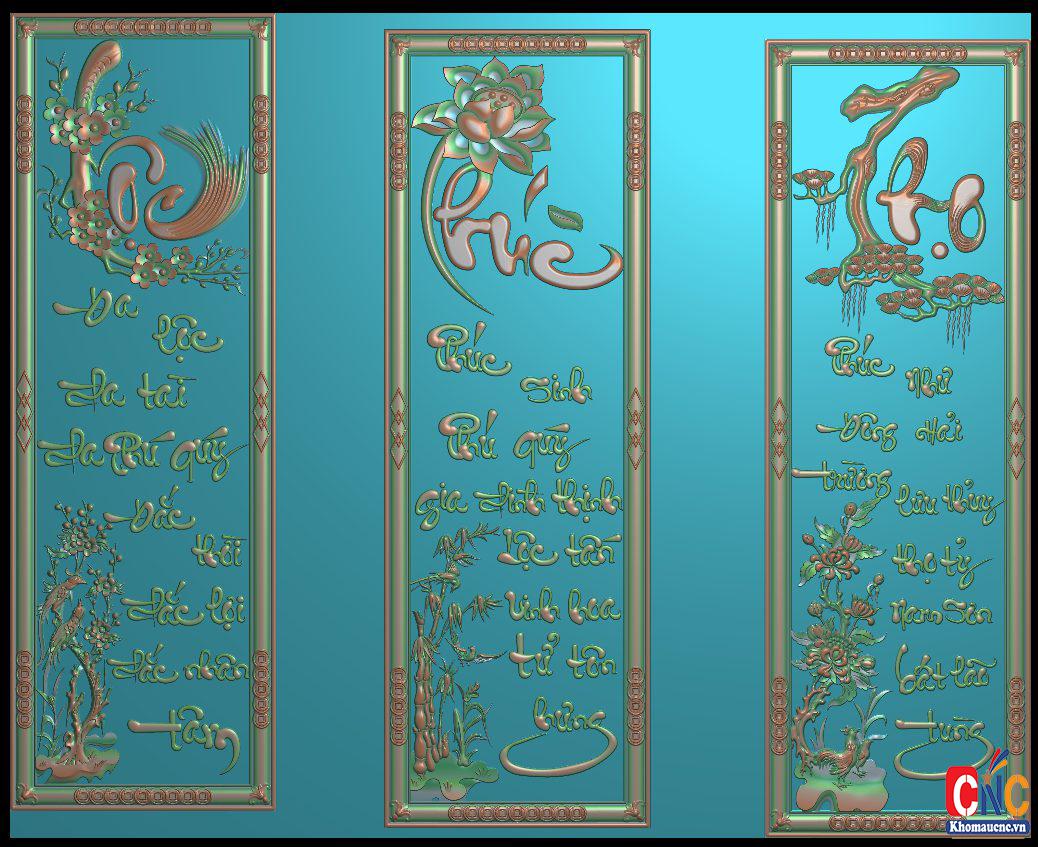 Lộc
Đa
lộc
Đa tài
Đa Phú quý
Đắc
thời
Đắc lợi
Đắc nhân
tâm
Phúc
Phúc
Sinh
Phú quý
gia Đình thịnh
Lộc tấn
Vinh hoa
tử tôn
hưng
Thọ
Phúc Như
Đông Hải
trường
lưu thủy
thọ tỷ
Nam Sơn
bất lão
tùng
CNC
Khomaucnc.vn